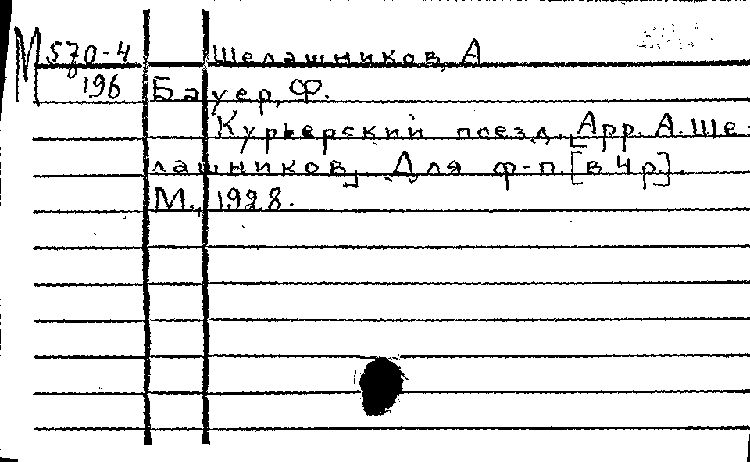 М 570-4 Шелашников, А
196 Бауер, Ф.
Курьерский поезд. [Арр. А. Ше-
лашников]. Для ф-п. [в 4 р.].
М., 1928.